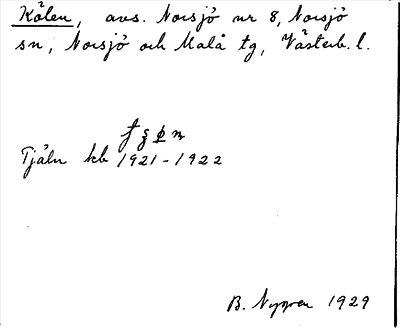 Kölen, avs. Norsjö nr 8, Norsjö
sn, Norsjö och Malå tg, Västerb. l.
Tjäln kb 1921-1922
B. Nygren 1929